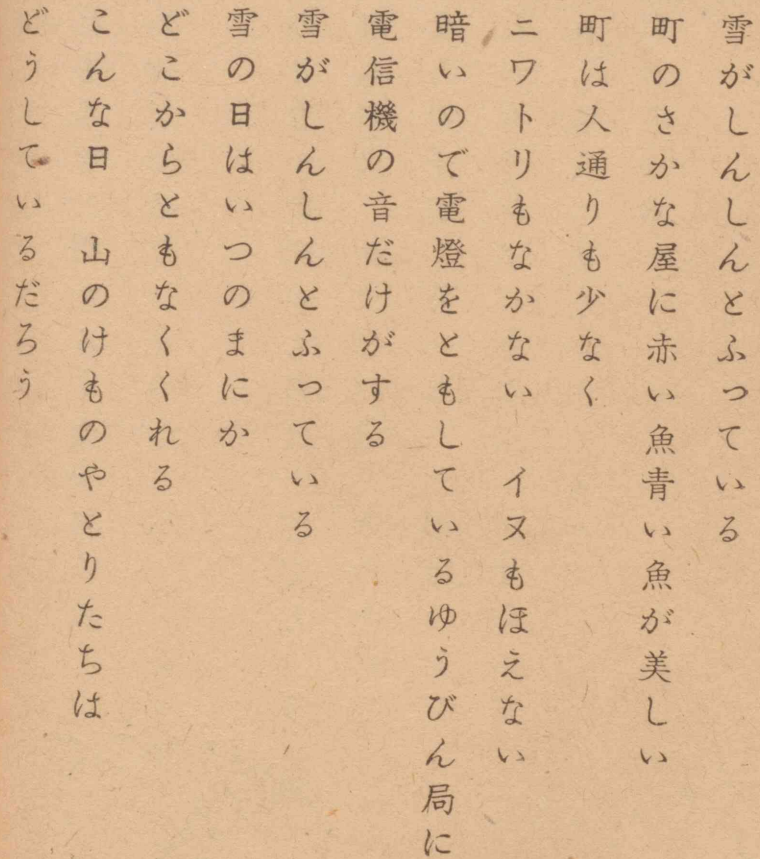 雪がしんしんとふっている
町のさかな屋に赤い魚青い魚が美しい
町は人通りも少なく
ニワトリもなかない　イヌもほえない
暗いので電燈をともしているゆうびん局に
電信機の音だけがする
雪がしんしんとふっている
雪の日はいつのまにか
どこからともなくくれる
こんな日　山のけものやとりたちは
どうしているだろう